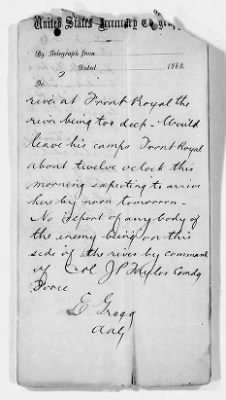 United States Military Telegraph.
By Telegraph from
Dated 186
To
river at Front Royal the
river being too deep - Would
leave his camps Front Royal
about twelve oclock this
morning expecting to arrive
here by noon tomorrow -
No report of any body of
the enemy being on this
side of the river by command
of Col J P Taylor Comdg
Force
E Gregg